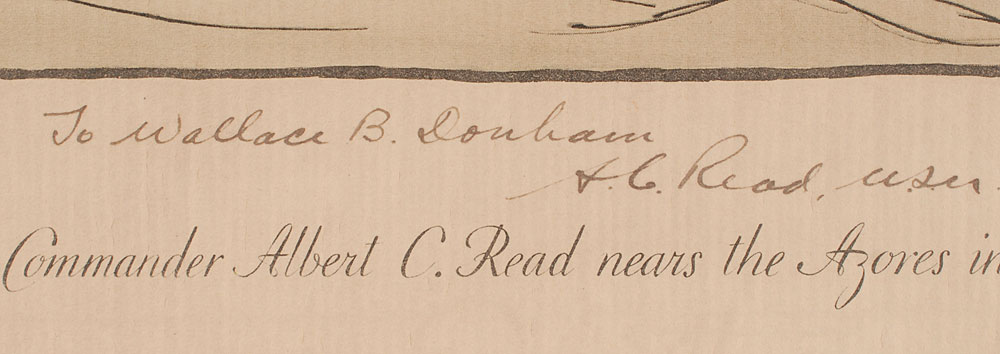 To Wallace B. Donham
A. C. Read, U.S.N.
Commander Albert C. Read nears the Azores in